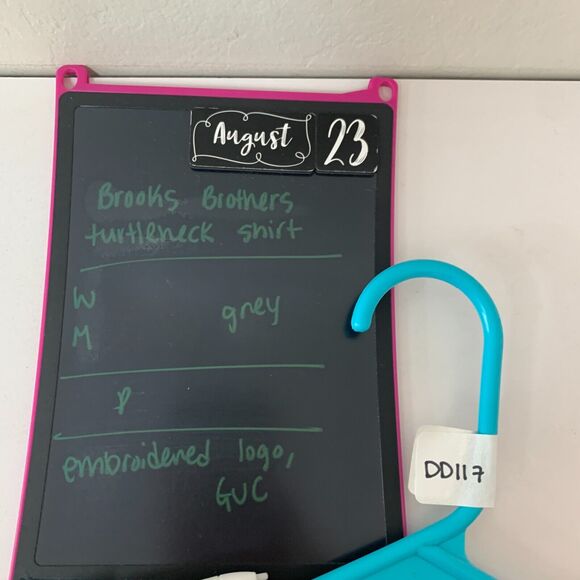 August 23
Brooks Brothers
turtleneck shirt
W
grey
M
P
embroidered logo,
GUC
DD117